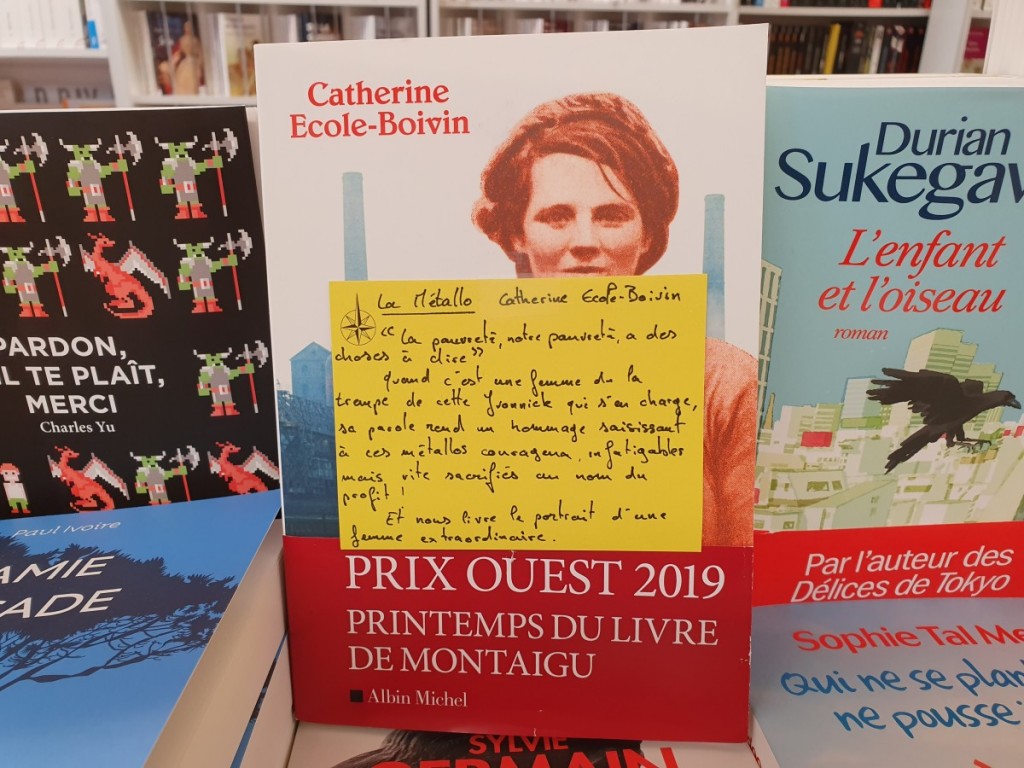 Catherine
Ecole-Boivin
La Métallo Catherine Ecole-Boivin
"La pauvreté, notre pauvreté, a des
choses à dire"
Quand c'est une femme de la
trempe de cette Yvonnick qui s'en charge,
sa parole rend un hommage saisissant
à ces métallos courageux, infatigables
mais vite sacrifiés au nom du
profit !
Et nous livre le portrait d'une
femme extraordinaire.
PRIX OUEST 2019
PRINTEMPS DU LIVRE
DE MONTAIGU
Albin Michel
PARDON,
IL TE PLAÎT,
MERCI
Charles Yu
Paul Ivoire
AMIE
ADE
Durian
Sukegaw
L'enfant
et l'oiseau
roman
Par l'auteur des
Délices de Tokyo
Sophie Tal Me
Qui ne se plan
ne pousse
SYLVIE
GERMAIN